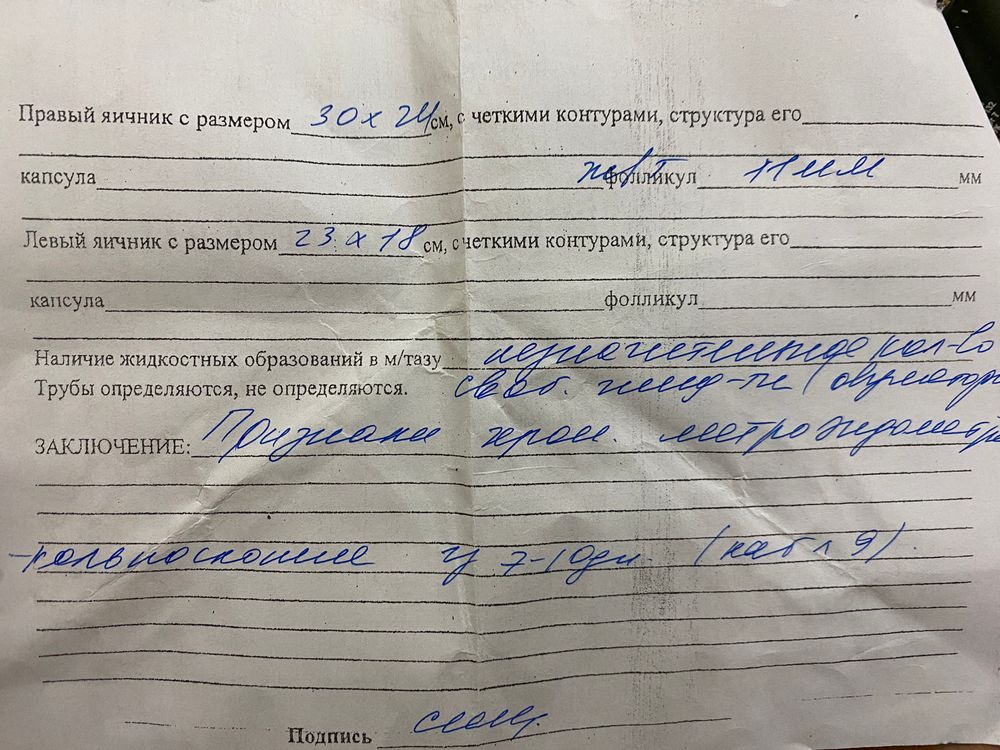 Правый яичник с размером 30 х 24 см, с четкими контурами, структура его
капсула фолликул 11 мм мм
Левый яичник с размером 23 х 18 см, с четкими контурами, структура его
капсула фолликул мм
Наличие жидкостных образований в м/тазу незначительное кол-во
Трубы определяются, не определяются. своб. жид-ти (овулятор
ЗАКЛЮЧЕНИЕ: Признаки хрон. метроэндометри
- кольпоскопия ч/з 7-10дн. (каб 9).
Подпись